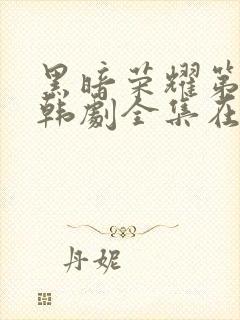 黑暗荣耀第
韩剧全集在
丹妮